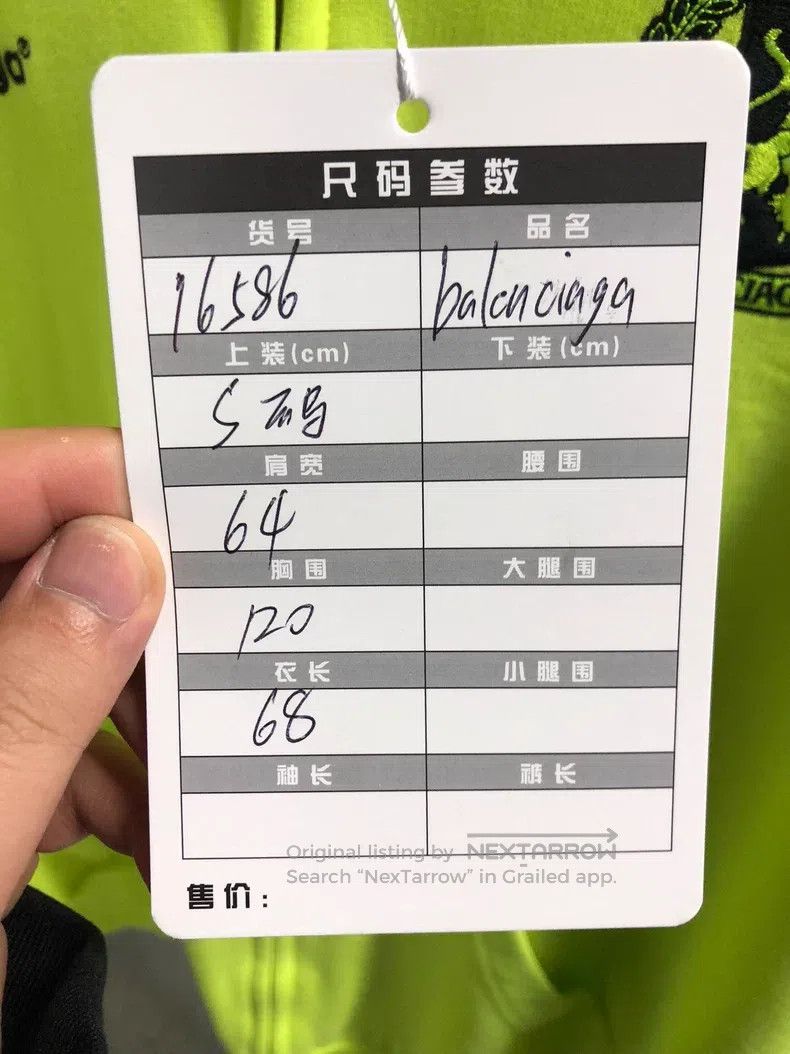 尺码参数
货号 品名
16586 balenciaga
上装(cm) 下装(cm)
S码
肩宽 腰围
64
胸围 大腿围
120
衣长 小腿围
68
袖长 裤长
Original listing by NEXTARROW
Search “NexTarrow” in Grailed app.
售价：